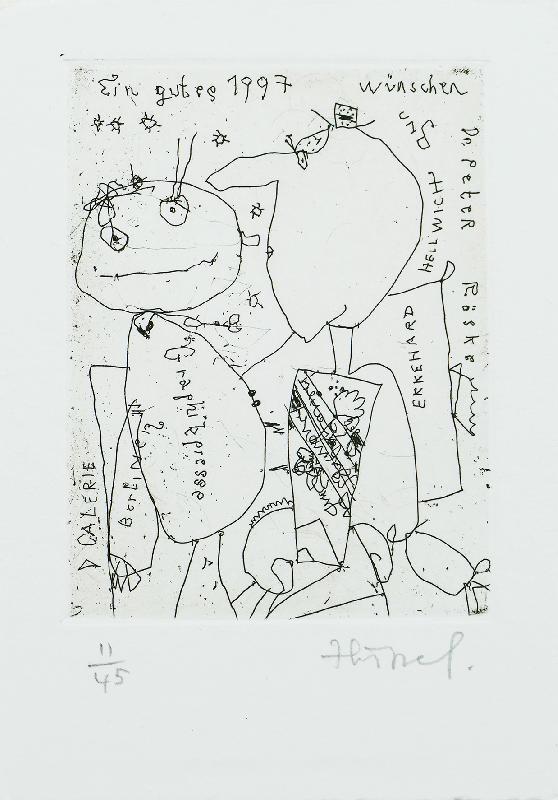 Ein gutes 1997 wünschen
und
Dr Peter Röske
HELLWICH
EKKEHARD
Graphikpresse
Berliner
GALERIE
11/45